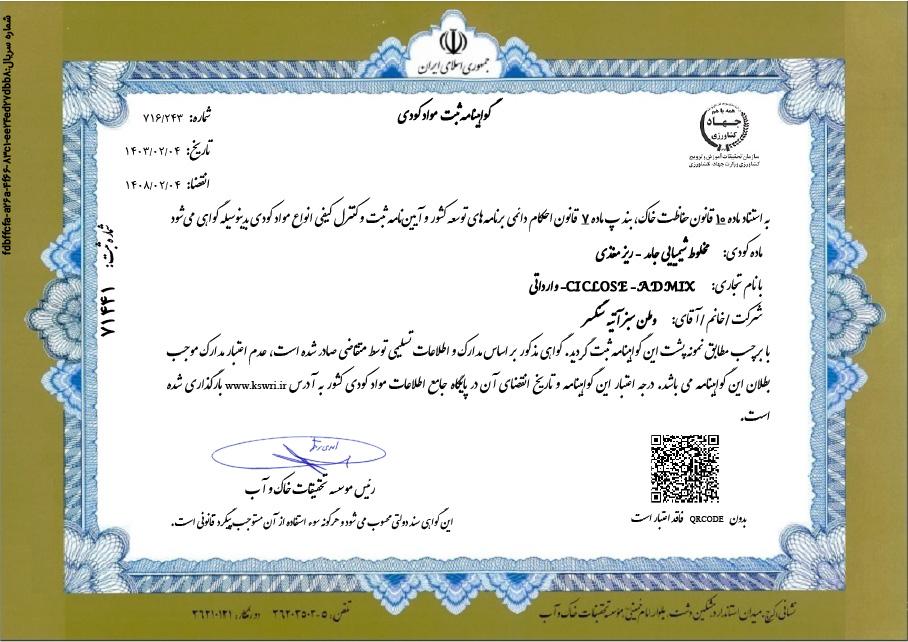 جمهوری اسلامی ایران
همه با هم
جهاد
کشاورزی
سازمان تحقیقات، آموزش و ترویج
کشاورزی وزارت جهاد کشاورزی
گواهینامه ثبت مواد کودی
شماره: ۷۱۶/۲۴۳
تاریخ: ۱۴۰۳/۰۲/۰۴
انقضا: ۱۴۰۸/۰۲/۰۴
به استناد ماده ۱۰ قانون حفاظت خاک، بند پ ماده ۷ قانون احکام دائمی برنامه های توسعه کشور و آیین نامه ثبت و کنترل کیفی انواع مواد کودی بدینوسیله گواهی می شود
ماده کودی: مخلوط شیمیایی جامد - ریز مغذی
با نام تجاری: CICLOSE -ADMIX- وارداتی
شرکت / خانم / آقای: وطن سبز آتیه سنگسر
با برچسب مطابق نمونه پشت این گواهینامه ثبت گردید. گواهی مذکور بر اساس مدارک و اطلاعات تسلیمی توسط متقاضی صادر شده است، عدم اعتبار مدارک موجب
بطلان این گواهینامه می باشد. درجه اعتبار این گواهینامه و تاریخ انقضای آن در پایگاه جامع اطلاعات مواد کودی کشور به آدرس www.kswri.ir بارگذاری شده
است.
رئیس موسسه تحقیقات خاک و آب
این گواهی سند دولتی محسوب می شود و هرگونه سوء استفاده از آن مستوجب پیگرد قانونی است.
بدون QRCODE فاقد اعتبار است
شماره ثبت: ۷۱۴۴۱
شماره سریال:
نشانی: کرج، میدان استاندارد، مشکین دشت، بلوار امام خمینی، موسسه تحقیقات خاک و آب
تلفن: ۵-۳۶۲۰۳۵۰۳ دورنگار: ۳۶۲۱۰۱۲۱